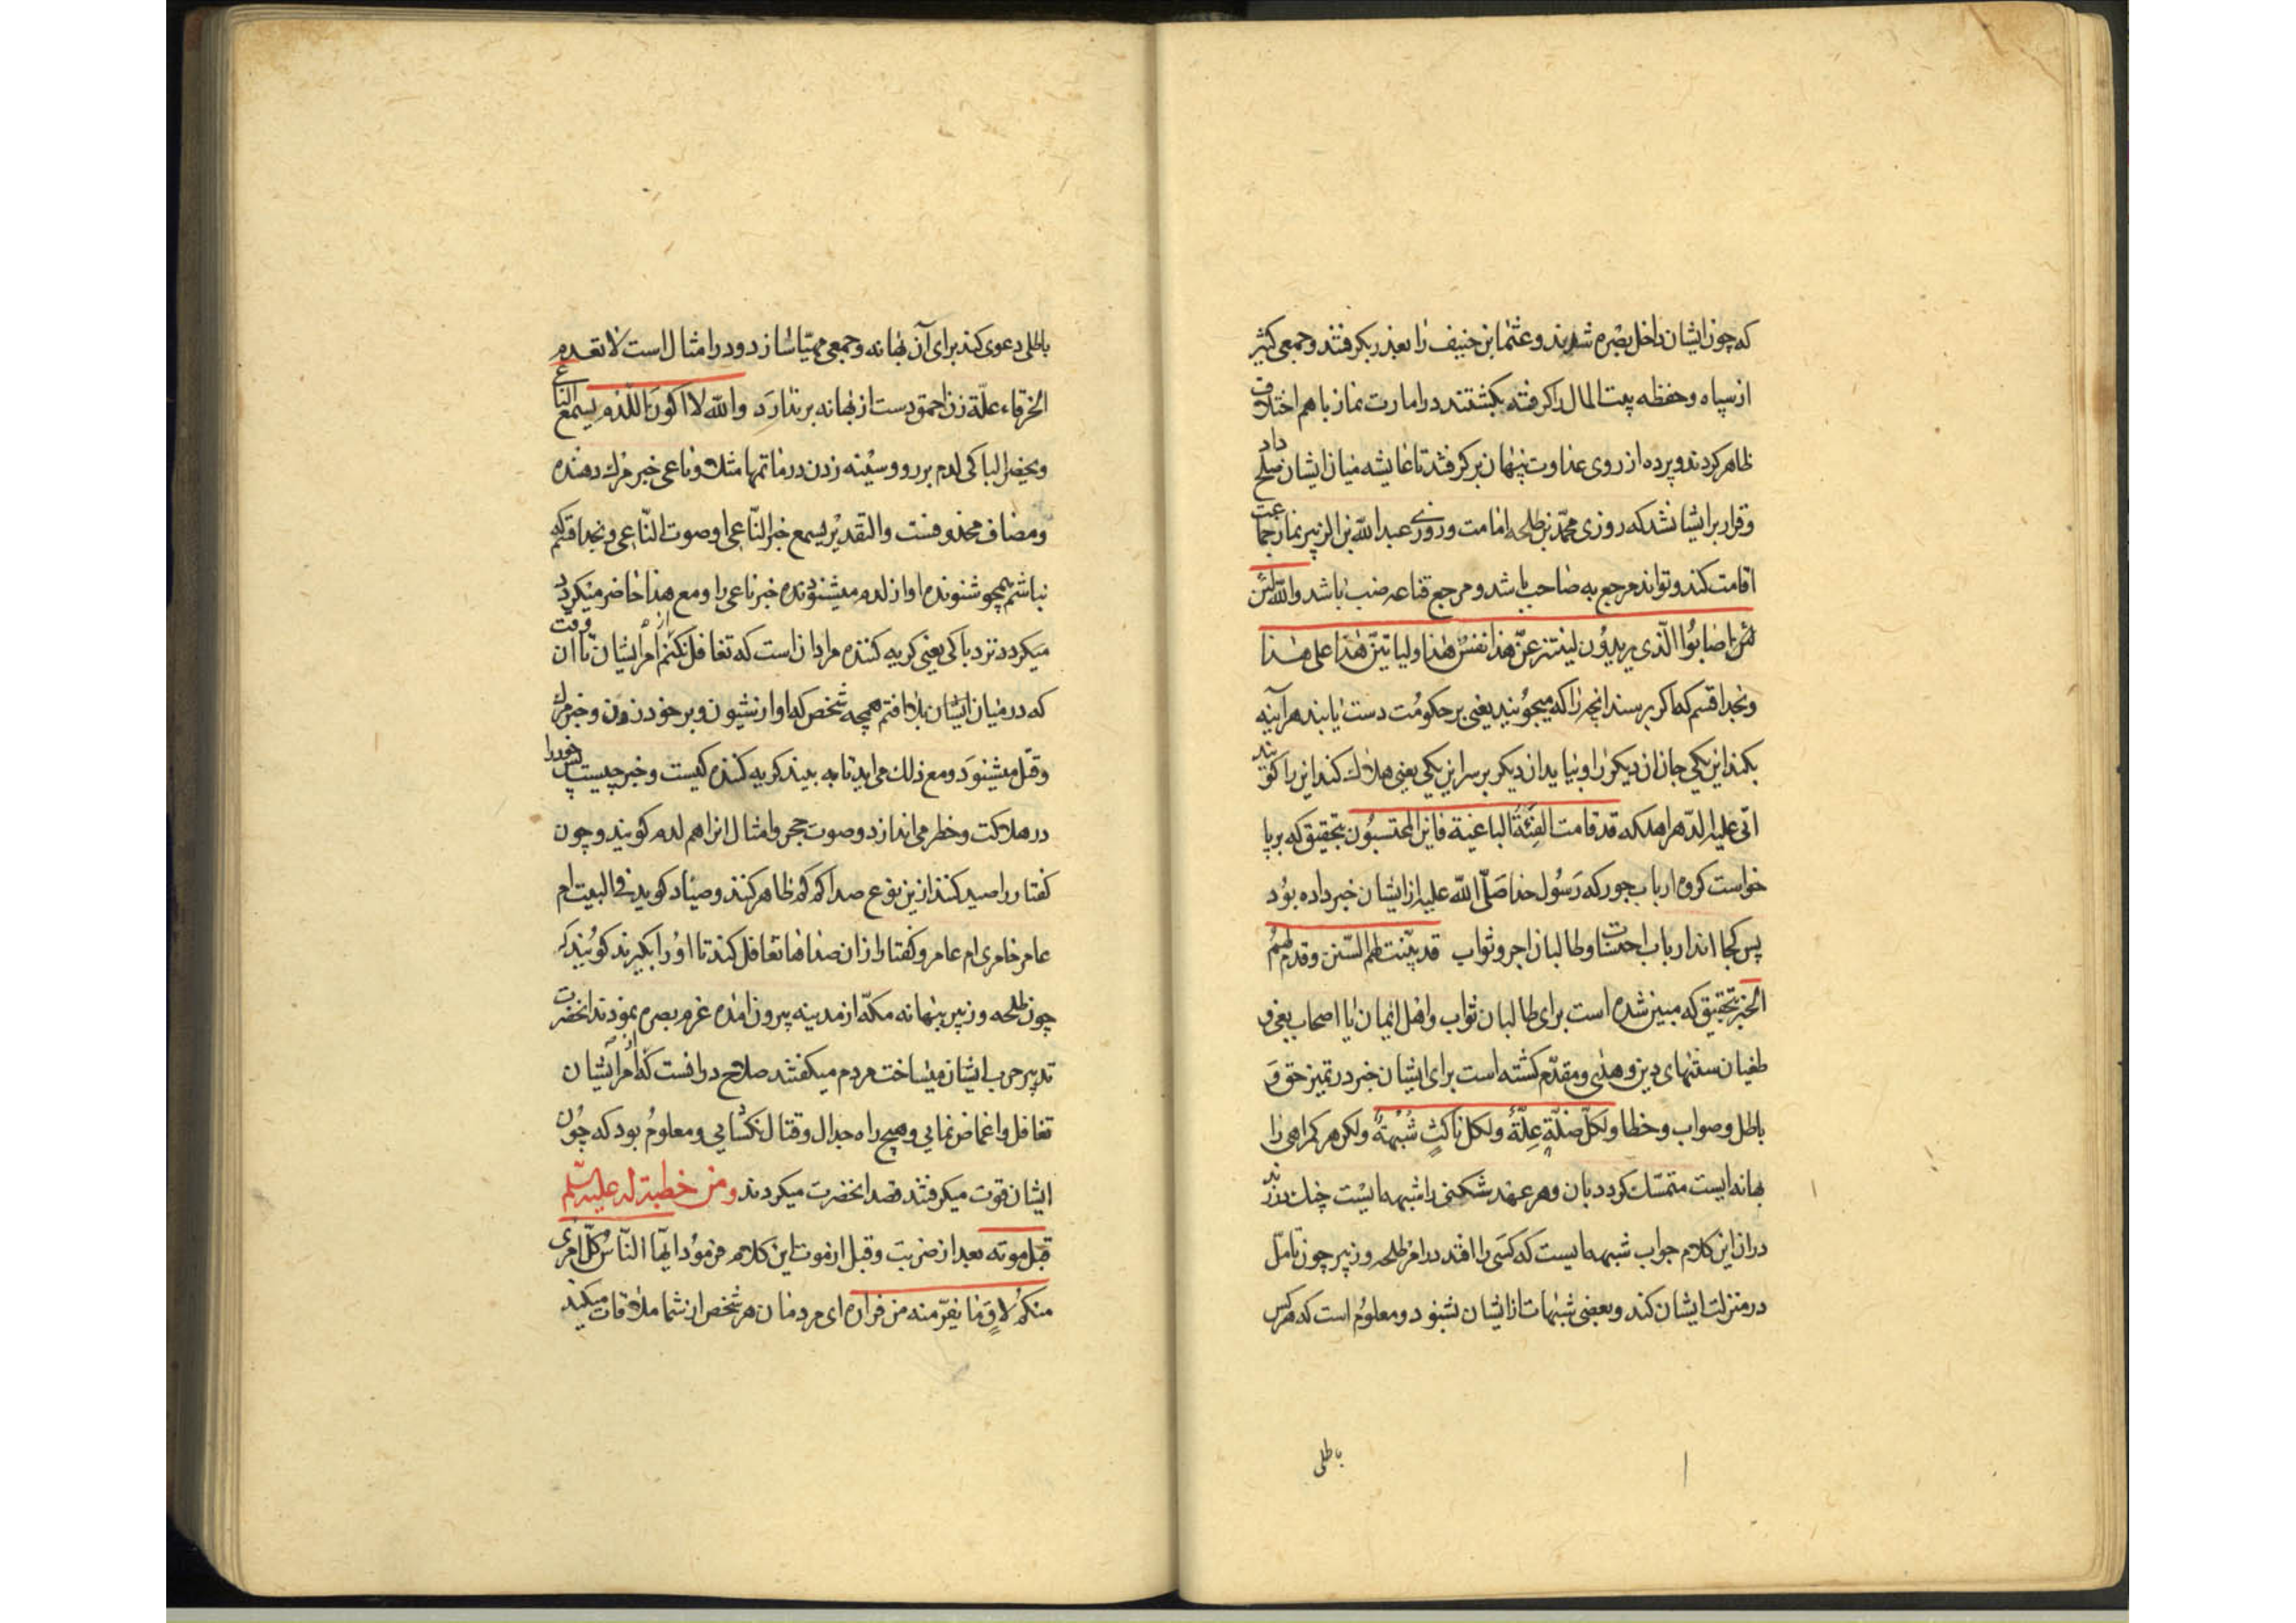 که چون ایشان داخل بصره شدند و عثمان بن حنیف را بغدر بکرفتند و جمعی کثیر
از سپاه و حفظه بیت المال را کرفته بکشتند در امارت نماز با هم اختلاف
ظاهر کردند و پرده از روی عداوت پنهان بر کرفتند تا عایشه میان ایشان صلح داد
و قرار بر ایشان شد که روزی محمّد بن طلحه امامت و روزی عبد الله بن الزبیر نماز جماعت
اقامت کند و تواند مرجع به صاحب باشد و مرجع قناعه ضب باشد والله لئن
اصابوا الّذی یریدون لینتزعنّ هذا نفس هذا ولیاتینّ هذا علی هذا
و بخدا قسم که اکر برسند انچه را که میجویند یعنی بر حکومت دست یابند هر آینه
بکند این یکی جان ان دیکر را و بیاید ان دیکر بر سر این یکی یعنی هلاک کند این را کویند
اتی علیه الدّهر اهلکه قد قامت الفئة الباغیة فاین المحتسبون بتحقیق که بر پا
خواست کروه ارباب جور که رسول خدا صلّی الله علیه از ایشان خبر داده بود
پس کجا اند ارباب احتساب و طالبان اجر و ثواب قد بیّنت لهم السّنن و قدم لهم
الخبر بتحقیق که مبین شده است برای طالبان ثواب و اهل ایمان یا اصحاب بغی و
طغیان سنتهای دین و هدی و مقدّم کشته است برای ایشان خبر در تمیز حق و
باطل و صواب و خطا ولکلّ ضلّة علّة ولکل ناکث شبهة ولکن هر کمراهی را
بهانه ایست متمسّک کردد بان و هر عهد شکنی را شبهه ایست چنك در زند
در ان این کلام جواب شبهه ایست که کسی را افتد در امر طلحه و زبیر چون تامّل
در منزلت ایشان کند و بعضی شبهات از ایشان شنود و معلوم است که هر کس
باطلی
باطلی دعوی کند برای آن بهانه و جمعی مهیّا سازد و در امثال است لا تعدم
الخرقاء علّة زن احمق دست از بهانه بر ندارد والله لا اکون کمستمع اللّدم یسمع الناعی
و یحضر الباکی لدم بر رو و سینه زدن در ماتمها مثلا و ناعی خبر مرك دهنده
و مضاف محذوفست والتقدیر یسمع خبر النّاعی او صوت النّاعی و بخدا قسم که
نباشم همچو شنونده اواز لدم میشنونده خبر ناعی را و مع هذا حاضر میکردد
میکردد نزد باکی یعنی کریه کننده مراد ان است که تغافل نکنم از امر ایشان تا ان وقت
که در میان ایشان بلا افتم همچه شخص که اواز شیون و بر خود زدن و خبر مرك
و قتل میشنود و مع ذلك می اید تا به بیند کریه کننده کیست و خبر چیست پس خود را
در هلاکت و خطر می اندازد و صوت حجر و امثال انرا هم لدم کویند و چون
کفتار را صید کنند ازین نوع صدا که کم ظاهر کنند و صیاد کوید فی البیت ام
عامر خامری ام عامر و کفتار از ان صداها تغافل کند تا او را بکیرند کویند که
چون طلحه و زبیر بهانه مکّه از مدینه بیرون امده عزم بصره نمودند انحضرت
تدبیر حرب ایشان میساخت مردم میکفتند صلاح در انست که از امر ایشان
تغافل و اغماض نمایی و هیچ راه جدال و قتال نکشایی و معلوم بود که چون
ایشان قوت میکرفتند قصد انحضرت میکردند و من خطبة له علیه السّلم
قبل موته بعد از ضربت و قبل از موت این کلام فرمود ایّها النّاس کلّ امرئ
منکم لاق ما یفرّ منه من فراره ای مردمان هر شخص از شما ملاقات میکند